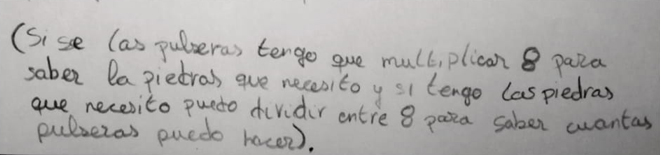 (Si se las pulseras tengo que multiplicar 8 para
saber la piedras que necesito y si tengo las piedras
que necesito puedo dividir entre 8 para saber cuantas
pulseras puedo hacer).